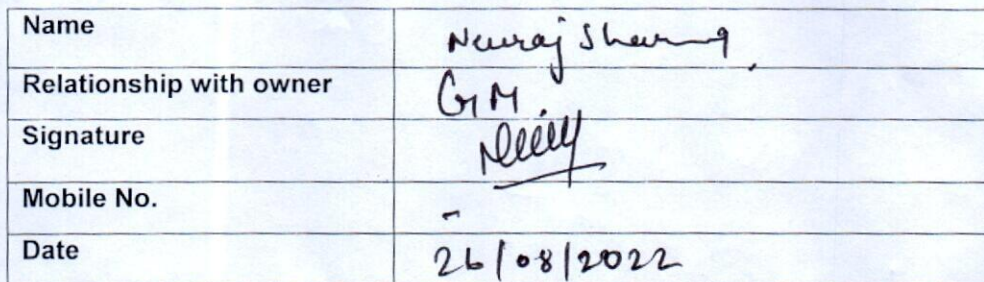 Name Neeraj Sharma
Relationship with owner GM.
Signature
Mobile No. -
Date 26/08/2022